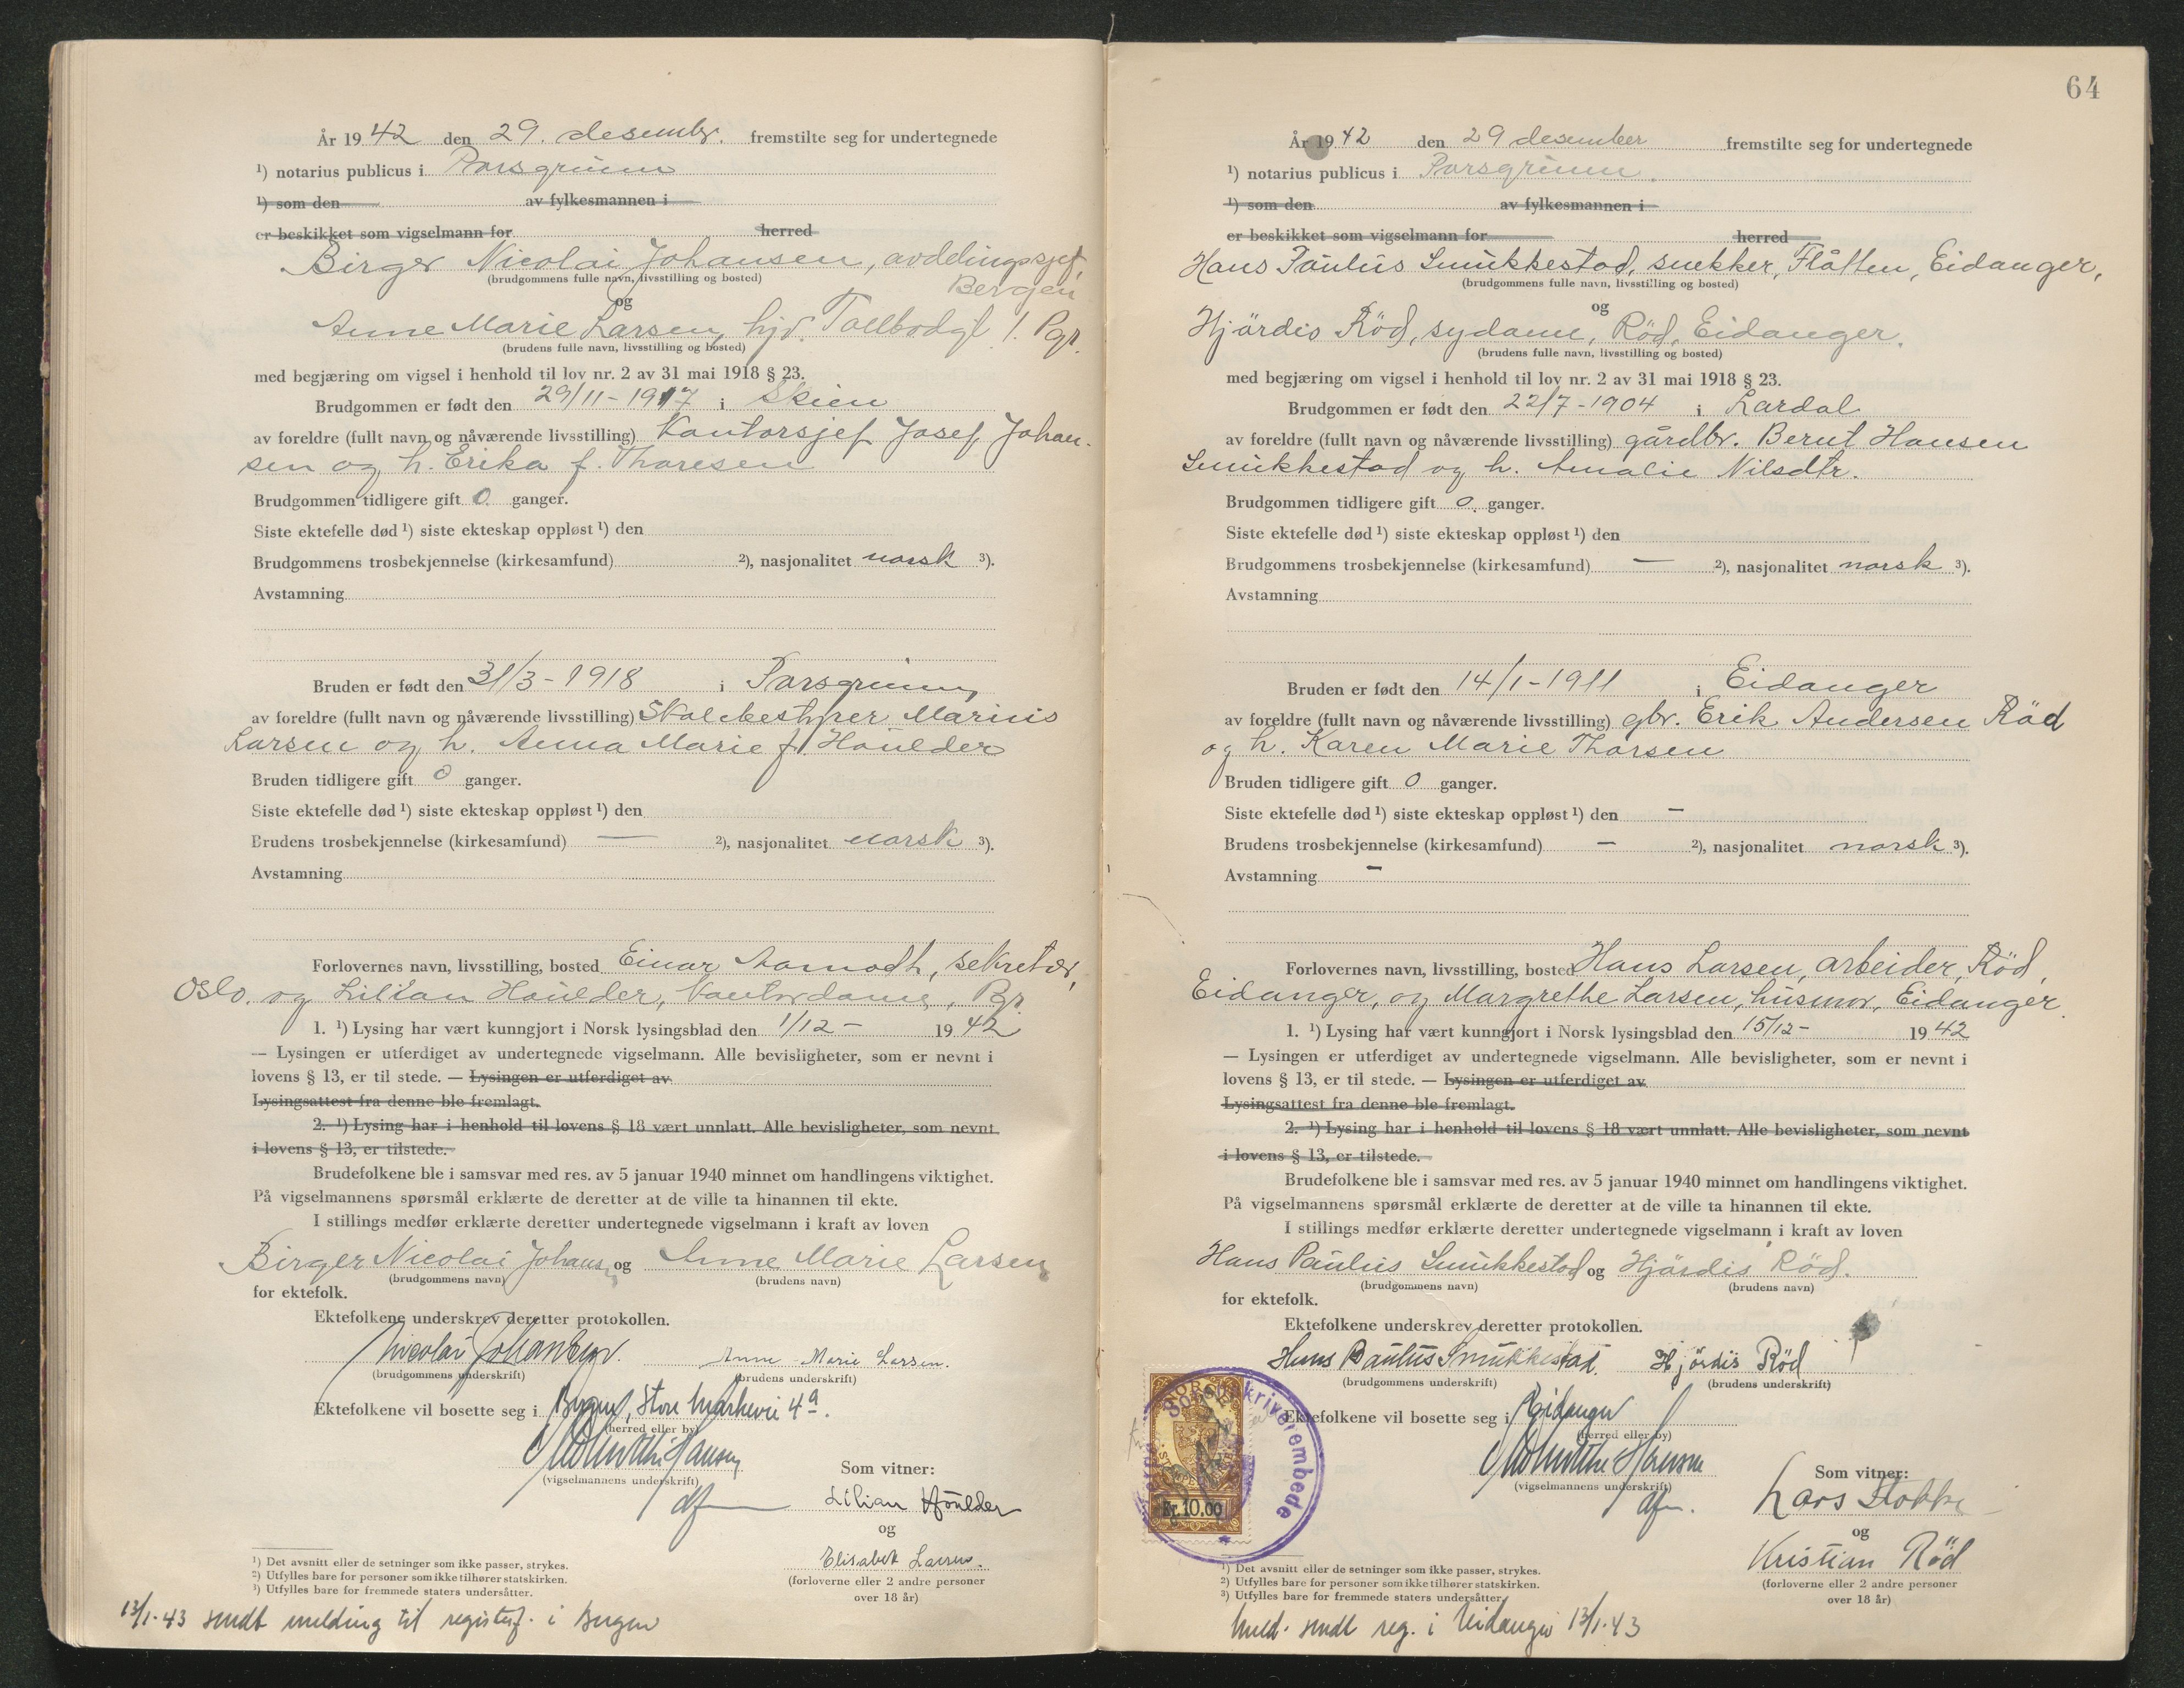 År 1942 den 29. desembr. fremstilte seg for undertegnede
¹) notarius publicus i Porsgrunn
¹) som den av fylkesmannen i
er beskikket som vigselmann for herred
Birger Nicolai Johansen, avdelingssjef,
(brudgommens fulle navn, livsstilling og bosted)
Bergen
og
Anne Marie Larsen, hjv. Tollbodgt 1. Pgr.
(brudens fulle navn, livsstilling og bosted)
med begjæring om vigsel i henhold til lov nr. 2 av 31 mai 1918 § 23.
Brudgommen er født den 29/11-1917 i Skien
av foreldre (fullt navn og nåværende livsstilling) Kontorsjef Josef Johan-
sen og h. Erika f. Thoresen
Brudgommen tidligere gift 0 ganger.
Siste ektefelle død ¹) siste ekteskap oppløst ¹) den
Brudgommens trosbekjennelse (kirkesamfund) ²), nasjonalitet norsk ³).
Avstamning
Bruden er født den 31/3-1918 i Porsgrunn
av foreldre (fullt navn og nåværende livsstilling) Skolebestyrer Marius
Larsen og h. Anna Marie f. Houlder
Bruden tidligere gift 0 ganger.
Siste ektefelle død ¹) siste ekteskap oppløst ¹) den
Brudens trosbekjennelse (kirkesamfund) — ²), nasjonalitet norsk ³).
Avstamning
Forlovernes navn, livsstilling, bosted Einar Aamodt, sekretær,
Oslo. og Lilian Houlder, kontordame, Pgr.
1. ¹) Lysing har vært kunngjort i Norsk lysingsblad den 1/12- 1942
— Lysingen er utferdiget av undertegnede vigselmann. Alle bevisligheter, som er nevnt i
lovens § 13, er til stede. — Lysingen er utferdiget av
Lysingsattest fra denne ble fremlagt.
2. ¹) Lysing har i henhold til lovens § 18 vært unnlatt. Alle bevisligheter, som nevnt
i lovens § 13, er tilstede.
Brudefolkene ble i samsvar med res. av 5 januar 1940 minnet om handlingens viktighet.
På vigselmannens spørsmål erklærte de deretter at de ville ta hinannen til ekte.
I stillings medfør erklærte deretter undertegnede vigselmann i kraft av loven
Birger Nicolai Johansen og Anne Marie Larsen
(brudgommens navn) (brudens navn)
for ektefolk.
Ektefolkene underskrev deretter protokollen.
Nicolai Johansen. Anne-Marie Larsen.
(brudgommens underskrift) (brudens underskrift)
Ektefolkene vil bosette seg i Bergen, Store Markevei 4a.
(herred eller by)
Hansen
(vigselmannens underskrift)
Som vitner:
dfm
Lilian Houlder
og
Elisabet Larsen.
(forloverne eller 2 andre personer
over 18 år)
¹) Det avsnitt eller de setninger som ikke passer, strykes.
²) Utfylles bare for personer som ikke tilhører statskirken.
³) Utfylles bare for fremmede staters undersåtter.
13/1-43 sendt melding til registerf. i Bergen
64
År 1942 den 29 desember fremstilte seg for undertegnede
¹) notarius publicus i Porsgrunn.
¹) som den av fylkesmannen i
er beskikket som vigselmann for herred
Hans Paulus Smukkestad, snekker, Flåtten, Eidanger,
(brudgommens fulle navn, livsstilling og bosted)
og
Hjördis Röd, sydame, Röd, Eidanger.
(brudens fulle navn, livsstilling og bosted)
med begjæring om vigsel i henhold til lov nr. 2 av 31 mai 1918 § 23.
Brudgommen er født den 22/7-1904 i Lardal
av foreldre (fullt navn og nåværende livsstilling) gårdbr. Bernt Hansen
Smukkestad og h. Amalie Nilsdtr.
Brudgommen tidligere gift 0. ganger.
Siste ektefelle død ¹) siste ekteskap oppløst ¹) den
Brudgommens trosbekjennelse (kirkesamfund) — ²), nasjonalitet norsk ³).
Avstamning
Bruden er født den 14/1-1911 i Eidanger
av foreldre (fullt navn og nåværende livsstilling) gbr. Erik Andersen Röd
og h. Karen Marie Thorsen
Bruden tidligere gift 0 ganger.
Siste ektefelle død ¹) siste ekteskap oppløst ¹) den –
Brudens trosbekjennelse (kirkesamfund) – ²), nasjonalitet norsk ³).
Avstamning –
Forlovernes navn, livsstilling, bosted Hans Larsen, arbeider, Röd,
Eidanger, og Margrethe Larsen, husmor, Eidanger.
1. ¹) Lysing har vært kunngjort i Norsk lysingsblad den 15/12- 1942
— Lysingen er utferdiget av undertegnede vigselmann. Alle bevisligheter, som er nevnt i
lovens § 13, er til stede. — Lysingen er utferdiget av
Lysingsattest fra denne ble fremlagt.
2. ¹) Lysing har i henhold til lovens § 18 vært unnlatt. Alle bevisligheter, som nevnt
i lovens § 13, er tilstede.
Brudefolkene ble i samsvar med res. av 5 januar 1940 minnet om handlingens viktighet.
På vigselmannens spørsmål erklærte de deretter at de ville ta hinannen til ekte.
I stillings medfør erklærte deretter undertegnede vigselmann i kraft av loven
Hans Paulus Smukkestad og Hjördis Röd.
(brudgommens navn) (brudens navn)
for ektefolk.
Ektefolkene underskrev deretter protokollen.
Hans Paulus Smukkestad. Hjördis Röd
(brudgommens underskrift) (brudens underskrift)
Ektefolkene vil bosette seg i Eidanger
(herred eller by)
Hansen
(vigselmannens underskrift)
Som vitner:
dfm.
Lars Stokke
og
Kristian Röd
(forloverne eller 2 andre personer
over 18 år)
Sorenskriverembede
Kr. 10,00
¹) Det avsnitt eller de setninger som ikke passer, strykes.
²) Utfylles bare for personer som ikke tilhører statskirken.
³) Utfylles bare for fremmede staters undersåtter.
Meld. sendt reg. i Eidanger 13/1-43